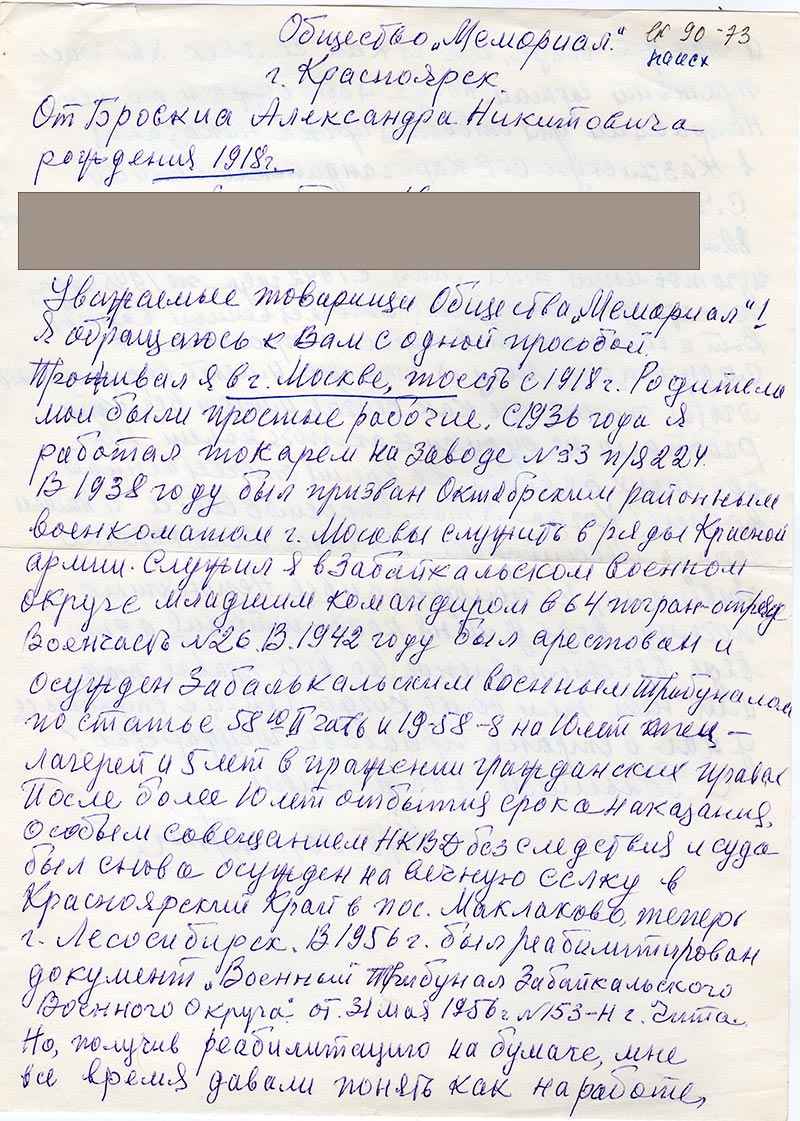 Общество „Мемориал."
вх 90-73
поиск
г. Красноярск.
От Броскиа Александра Никитовича
рождения 1918г.
Уважаемые товарищи Общества „Мемориал"!
Я обращаюсь к Вам с одной прозьбой.
Проживал я в г. Москве, тоесть с 1918г. Родители
мои были простые рабочие. С 1936 года я
работал токарем на Заводе №33 п/я 224.
В 1938 году был призван Октябрским районным
военкоматом г. Москвы служить в ряды Красной
армии. Служил я в Забайкальском военном
округе младшим командиром в 64 погран-отряд
Воен часть №26. В. 1942 году был арестован и
осужден Забалькальским военным Трибуналом
по статье 58 10 II часть и 19-58-8 на 10 лет
лагерей и 5 лет в пражении гражданских правах
После более 10 лет отбытия срока наказания,
Особым совещанием НКВД без следствия и суда
был снова осужден на вечную сслку в
Красноярский Край в пос. Маклаково, теперь
г. Лесосибирск. В 1956 г. был реабилитирован
документ „Военный Трибунал Забайкальского
Военного Округа" от. 31 мая 1956г №153-Н г. Чита.
Но, получив реабилитацию на бумаге, мне
все время давали понять как на работе,